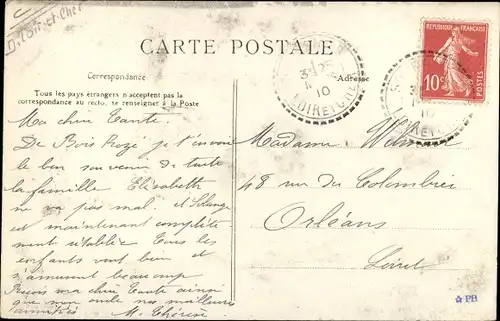 D. Loir-et-Cher
CARTE POSTALE
Correspondance
Adresse
Tous les pays étrangers n'acceptent pas la
correspondance au recto, se renseigner à la Poste
REPUBLIQUE FRANÇAISE
10c
POSTES
10
LOIR-ET-CHER
10
LOIR-ET-CHER
Ma chère Tante.
De Bois Rozé je t'envoie
le bon souvenir de toute
la famille Elisabeth
ne va pas mal. et Solange
est maintenant complète
ment rétablie Tous les
enfants vont bien et
s'amusent beaucoup
Reçois ma chère Tante ainsi
que mon oncle nos meilleures
amitiés
M. Thérèse
Madame
48 rue des Colombier
Orléans
Loiret
PH